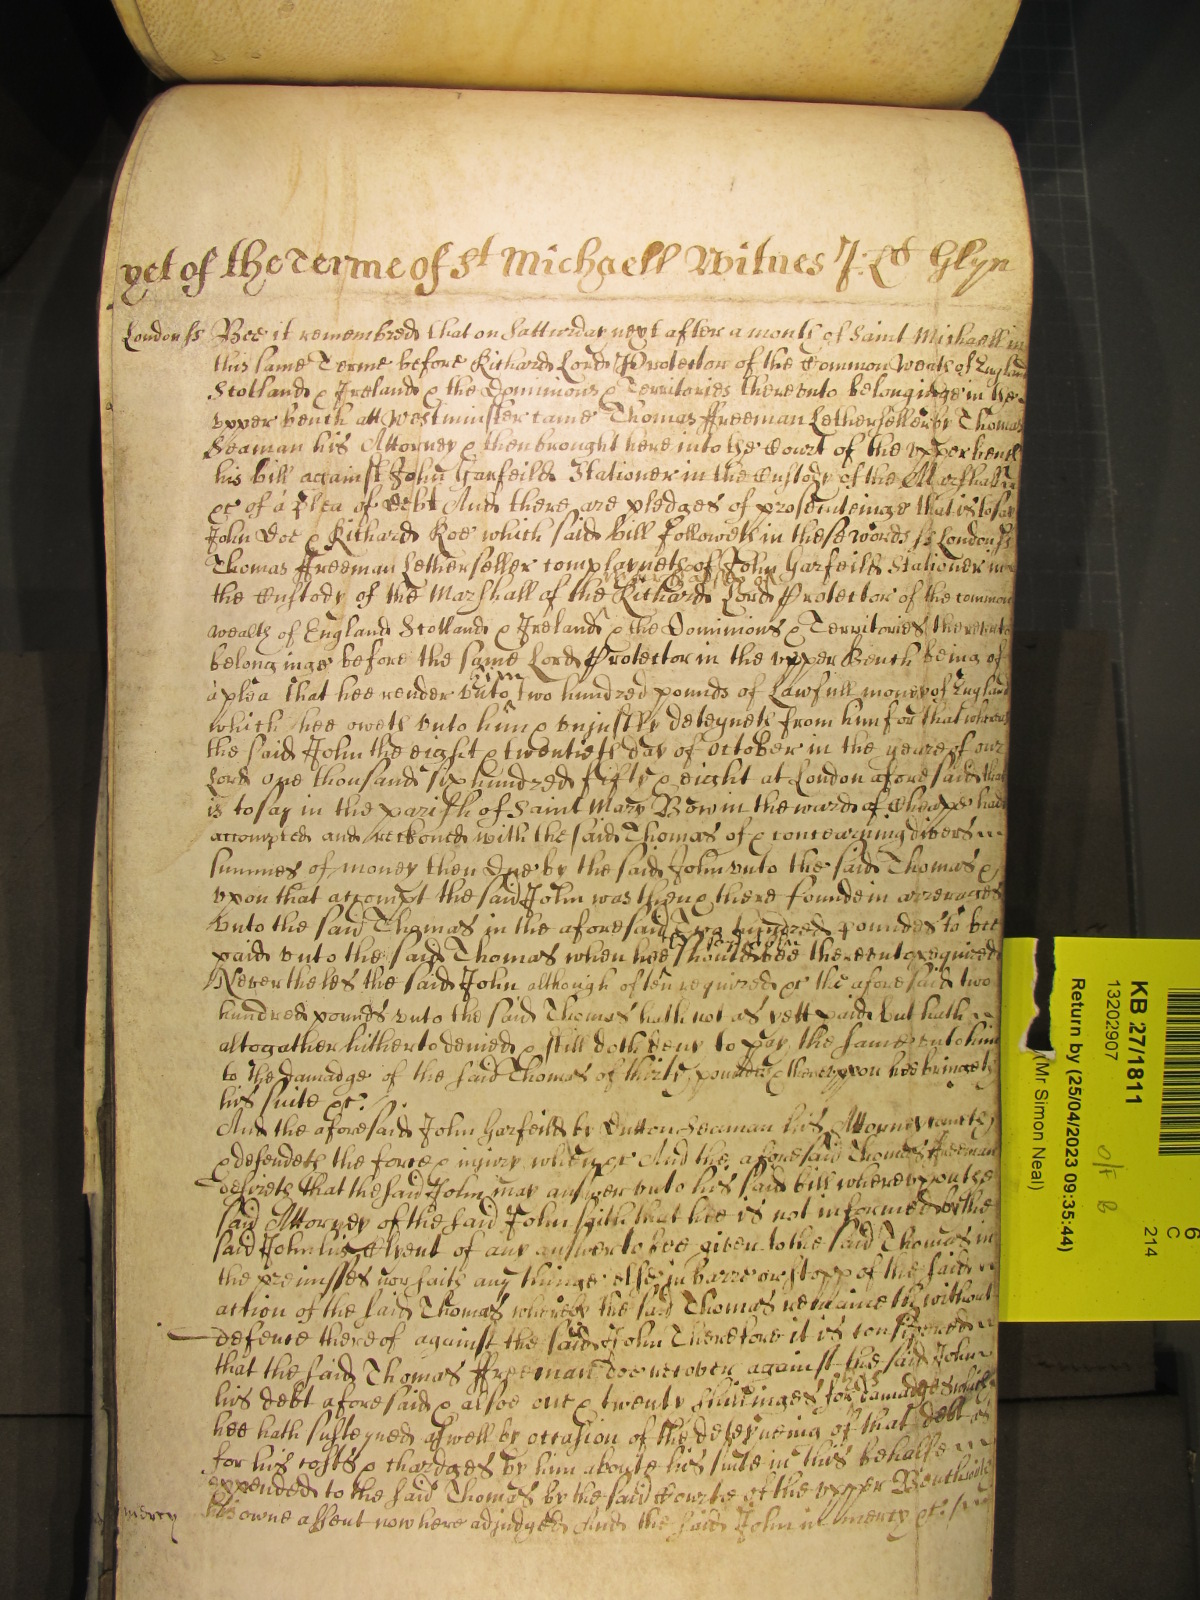 yet of the Terme of St Michaell Witnes J: Ld Glyn
London ss Bee it remembred that on Satturday next after a month of Saint Michaell in
this same Terme before Richard Lord Protector of the Common Wealth of England
Scotland & Ireland & the Dominions & Territories thereunto belonginge in the
upper bench att Westminster came Thomas Freeman Letherseller by Thomas
Seaman his Attorney & then brought here into the Court of the upper bench
his bill against John Garfeild Stationer in the Custody of the Marshall
&c of a Plea of Debt And there are pledges of prosecuteinge that is to say
John Doe & Richard Roe which said bill followeth in these words ss London ss
Thomas Freeman Letherseller complayneth of John Garfeild Stationer in
the Custody of the Marshall of the Marshalsey of Richard Lord Protector of the Common
wealth of England Scotland & Ireland & the Dominions & Territories thereunto
belonginge before the same Lord Protector in the upper Bench being of
a plea that hee render unto him two hundred pounds of Lawfull money of England
which hee oweth unto him & uniustly deteyneth from him for that whereas
the said John the eight & twentieth day of October in the yeare of our
Lord one thousand six hundred fifty & eight at London aforesaid that
is to say in the parish of Saint Mary Bow in the ward of Cheape had
accompted and reckoned with the said Thomas of & concearning divers
summes of money then due by the said John unto the said Thomas &
upon that accompt the said John was then & there founde in arrerages
unto the said Thomas in the aforesaid Two hundred poundes to bee
paid unto the said Thomas when hee should bee thereunto required
Neverthelesse the said John although often required &c the aforesaid two
hundred pounds unto the said Thomas hath not as yett paid but hath
altogather hitherto denied & still doth deny to pay the same unto him
to the damadge of the said Thomas of thirty pounds & thereuppon hee bringeth
his suite &c.
And the aforesaid John Garfeild by Dutton Seaman his Attorney cometh
& defendeth the force & iniury when &c And the aforesaid Thomas Freeman
desireth that the said John may answer unto his said bill whereuppon the
said Attorney of the said John saith that hee is not informed by the
said John his Clyent of any answer to bee given to the said Thomas in
the premisses nor saith any thinge else in barre or stopp of the said
action of the said Thomas whereby the said Thomas remaineth without
defence thereof against the said John Therefore it is considered
that the said Thomas Freeman doe recover against the said John
his debt aforesaid & alsoe one & twenty shillinges for his damadges which
hee hath susteyned aswell by occasion of the deteyneing of that debt as
for his costs & chardges by him aboute his suite in this behalfe
expended to the said Thomas by the said Courte of the upper Bench with
his owne assent now here adjudged And the said John in mercy &c.
mercy
KB 27/1811
13202907
Return by (25/04/2023 09:35:44)
(Mr Simon Neal)
6
C
214